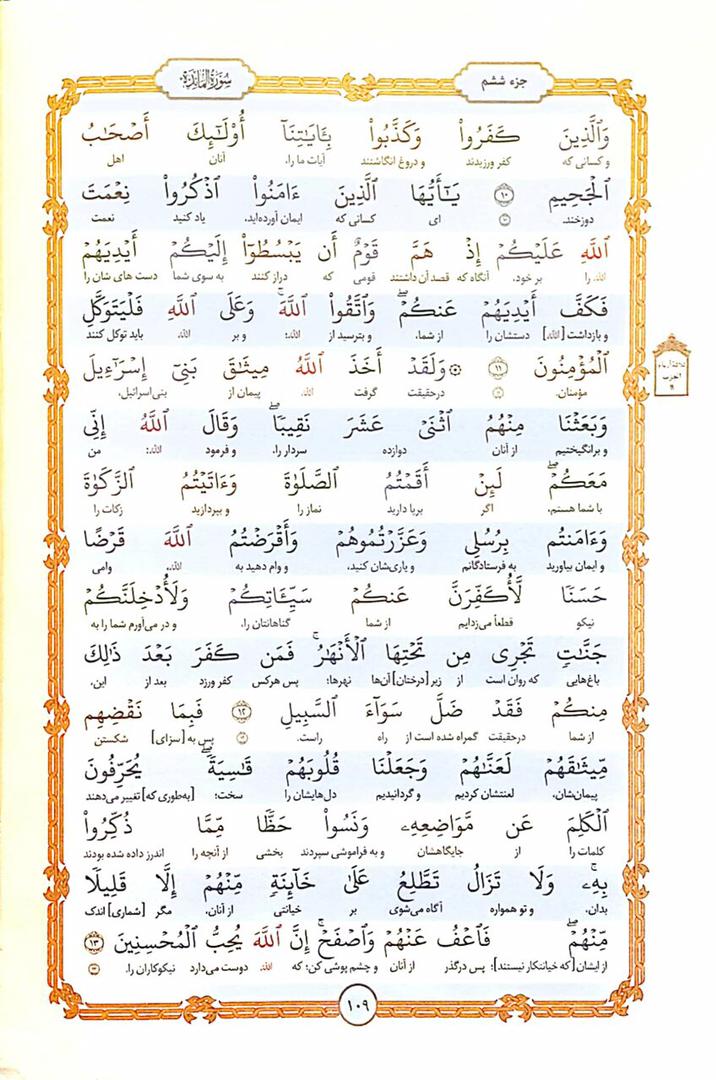 جزء ششم
سُورَةُ المَائِدَة
وَٱلَّذِينَ كَفَرُواْ وَكَذَّبُواْ بِـَٔايَٰتِنَآ أُوْلَٰٓئِكَ أَصۡحَٰبُ
و کسانی که کفر ورزیدند و دروغ انگاشتند آیات ما را، آنان اهل
ٱلۡجَحِيمِ ١٠ يَٰٓأَيُّهَا ٱلَّذِينَ ءَامَنُواْ ٱذۡكُرُواْ نِعۡمَتَ
دوزخند. ای کسانی که ایمان آورده‌اید، یاد کنید نعمت
ٱللَّهِ عَلَيۡكُمۡ إِذۡ هَمَّ قَوۡمٌ أَن يَبۡسُطُوٓاْ إِلَيۡكُمۡ أَيۡدِيَهُمۡ
الله را بر خود، آنگاه که قصد آن داشتند قومی که دراز کنند به سوی شما دست های شان را
فَكَفَّ أَيۡدِيَهُمۡ عَنكُمۡۖ وَٱتَّقُواْ ٱللَّهَۚ وَعَلَى ٱللَّهِ فَلۡيَتَوَكَّلِ
و بازداشت [الله] دستشان را از شما، و بترسید از الله؛ و بر الله، باید توکل کنند
ٱلۡمُؤۡمِنُونَ ١١ ۞ وَلَقَدۡ أَخَذَ ٱللَّهُ مِيثَٰقَ بَنِيٓ إِسۡرَٰٓءِيلَ
مؤمنان. درحقیقت گرفت الله، پیمان از بنی‌اسرائیل،
وَبَعَثۡنَا مِنۡهُمُ ٱثۡنَيۡ عَشَرَ نَقِيبٗاۖ وَقَالَ ٱللَّهُ إِنِّي
و برانگیختیم از آنان دوازده سردار را، و فرمود الله: من
مَعَكُمۡۖ لَئِنۡ أَقَمۡتُمُ ٱلصَّلَوٰةَ وَءَاتَيۡتُمُ ٱلزَّكَوٰةَ
با شما هستم، اگر برپا دارید نماز را و بپردازید زکات را
وَءَامَنتُم بِرُسُلِي وَعَزَّرۡتُمُوهُمۡ وَأَقۡرَضۡتُمُ ٱللَّهَ قَرۡضًا
و ایمان بیاورید به فرستادگانم و یاری‌شان کنید، و وام دهید به الله، وامی
حَسَنٗا لَّأُكَفِّرَنَّ عَنكُمۡ سَيِّـَٔاتِكُمۡ وَلَأُدۡخِلَنَّكُمۡ
نیکو قطعاً می‌زدایم از شما گناهانتان را، و در می‌آورم شما را به
جَنَّٰتٖ تَجۡرِي مِن تَحۡتِهَا ٱلۡأَنۡهَٰرُۚ فَمَن كَفَرَ بَعۡدَ ذَٰلِكَ
باغ‌هایی که روان است از زیر [درختان] آن‌ها نهرها؛ پس هرکس کفر ورزد بعد از این،
مِنكُمۡ فَقَدۡ ضَلَّ سَوَآءَ ٱلسَّبِيلِ ١٢ فَبِمَا نَقۡضِهِم
از شما درحقیقت گمراه شده است از راه راست. پس به [سزای] شکستن
مِّيثَٰقَهُمۡ لَعَنَّٰهُمۡ وَجَعَلۡنَا قُلُوبَهُمۡ قَٰسِيَةٗۖ يُحَرِّفُونَ
پیمان‌شان، لعنتشان کردیم و گردانیدیم دل‌هایشان را سخت؛ [به‌طوری که] تغییر می‌دهند
ٱلۡكَلِمَ عَن مَّوَاضِعِهِۦ وَنَسُواْ حَظّٗا مِّمَّا ذُكِّرُواْ
کلمات را از جایگاهشان و به فراموشی سپردند بخشی از آنچه را اندرز داده شده بودند
بِهِۦۚ وَلَا تَزَالُ تَطَّلِعُ عَلَىٰ خَآئِنَةٖ مِّنۡهُمۡ إِلَّا قَلِيلٗا
بدان، و تو همواره آگاه می‌شوی بر خیانتی از آنان، مگر [شماری] اندک
مِّنۡهُمۡۖ فَٱعۡفُ عَنۡهُمۡ وَٱصۡفَحۡۚ إِنَّ ٱللَّهَ يُحِبُّ ٱلۡمُحۡسِنِينَ ١٣
از ایشان [که خیانتکار نیستند]؛ پس درگذر از آنان و چشم پوشی کن؛ که الله دوست می‌دارد نیکوکاران را.
١٠٩